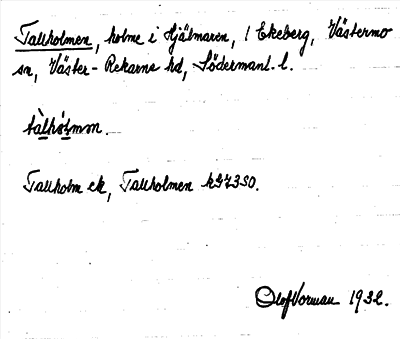 Tallholmen, holme i Hjälmaren, / Ekeberg, Västermo
sn, Väster-Rekarne hd, Södermanl. l.
tàlhólmṃn.
Tallholm ek, Tallholmen
Olof Vorman 1932.